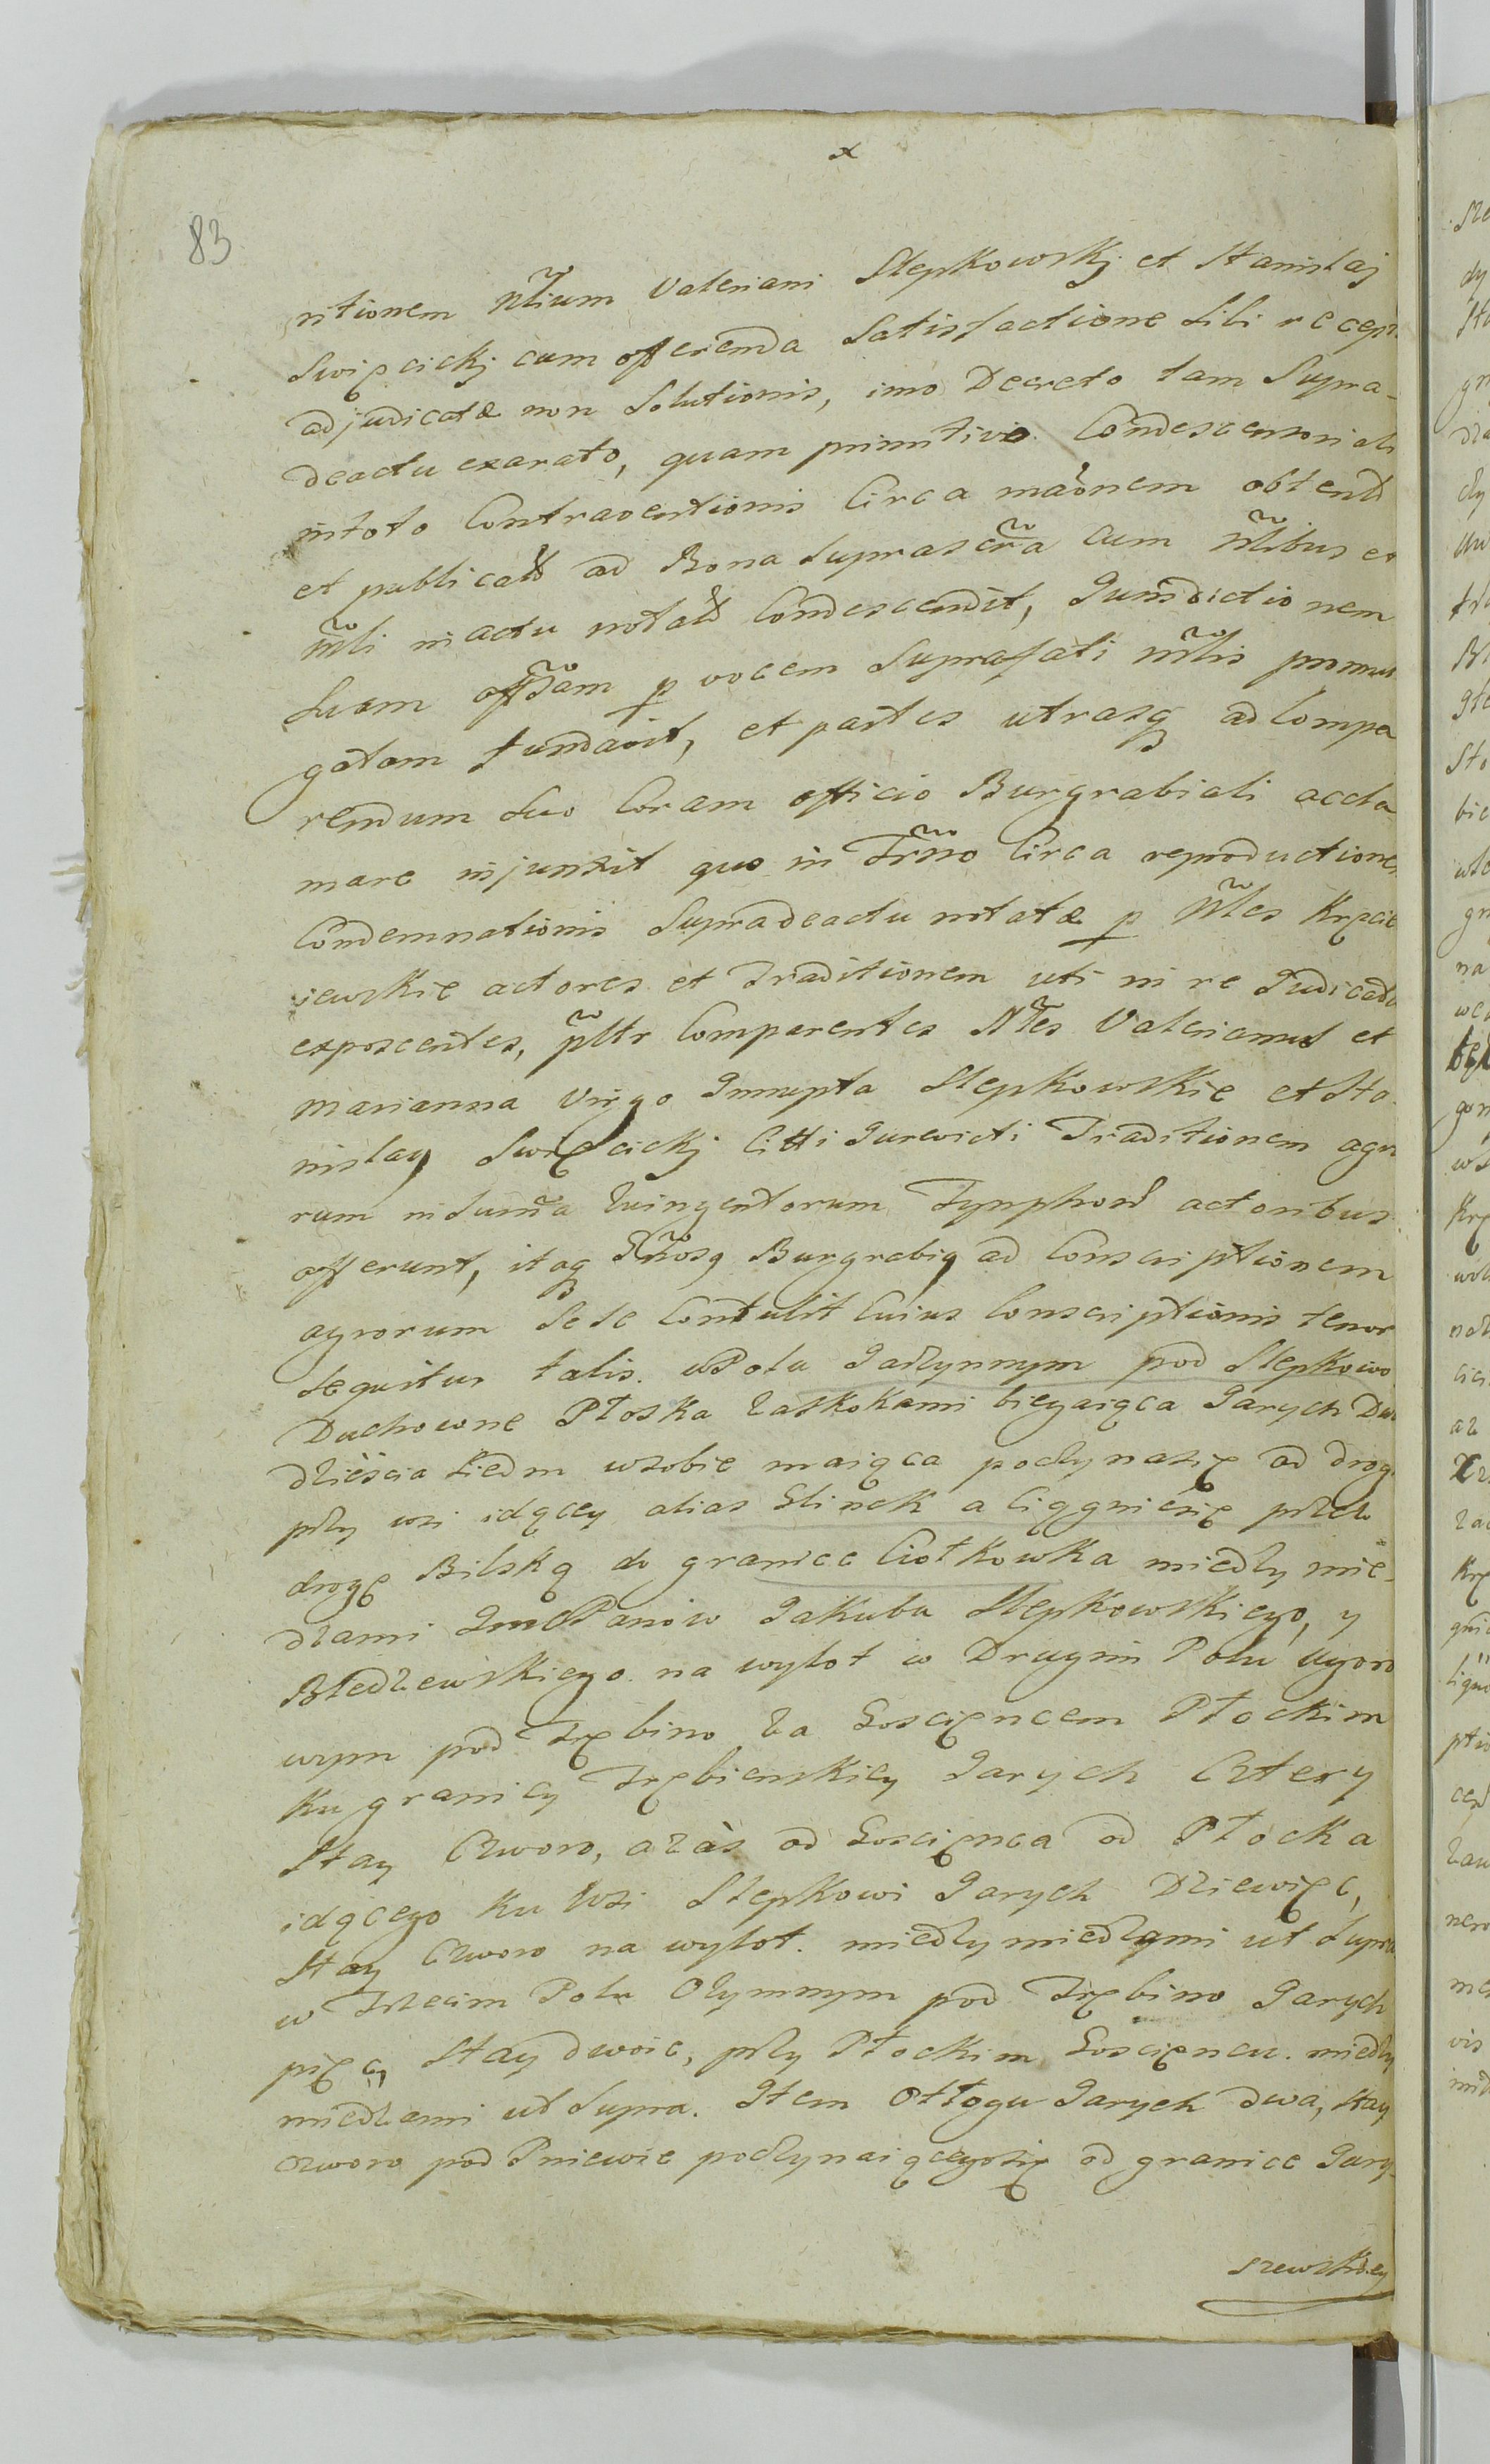 x
83
ritionem Nlium Valeriani Slepkowskj et Stanislaj
Swięcickj cum offerenda Satisfactione Sibi recept
adjudicatæ non Solutionis, imo Decreto tam Supra-
deactu exarato, quam primitivo Condescensoriali
intoto Contraventionis Circa maõnem obtent
et publicat ad Bona Suprascrã cum Nlibus et
Mli in actu notat Condescendit, Jurisdictionem
Suam offdam p vocem Suprafati Mlis promul
gatam fundavit, et partes utrasq ad Compa
rendum Suo Coram officio Burgrabiali accla
mare injunxit quo in Trño Circa reproductione
Condemnationis Supradeactu notatæ p Nles Kręcie
iewskie actores et Traditionem uti in re Judicata
exposcentes, pltr Comparentes Nles Valerianus et
Marianna Virgo Innupta Slepkowskie et Sta-
nislaỹ Swięcickj Citti Jurevicti Traditionem agro
rum in Suma Quingentorum Tynphor actoribus
offerunt, itaq Gñosq Burgrabiq ad Conscriptionem
agrorum Sese Contulit Cuius Conscriptionis tenor
sequitur talis. w Polu Jaczynnym pod Slepkowo
Duchowne Płoska zaskokami bieyaiąca Jarych Dwa
dzieścia Siedm wsobie maiąca poczynasię od drogi
przy wsi idącey alias Glinek a Ciągniesię przez
drogę Bilską do granice Ciołkowka miedzy mie-
dzami ImCPanów Jakuba Slepkowskiego, y
Bledzewskiego na wylot w Drugim Polu ugoro
wym pod Trębino za Goscięncem Płockim
Ku granicy Trębienskiey Jarych Cztery
Stay Czworo, azàs od Goscięnca od Płocka
idącego Ku Wsi Slepkowi Jarych Dziewięc,
Stay Czworo na wylot. miedzy miedzami ut Supra
w Trzecim Polu Ozymnym pod Trębino Jarych
pięc, Stay dwoie, przy Płockim Goscięncu. miedzy
miedzami ut Supra. Item Otłogu Jarych dwa, Stay
Czworo pod Pniewie poczynaiącegosię od granice Jury-
szewskiey